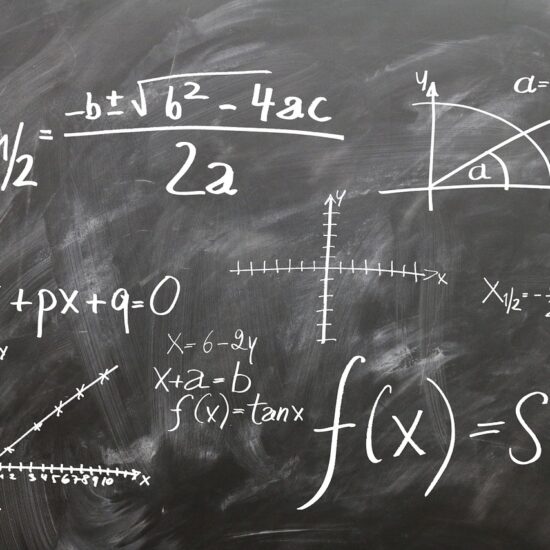 1/2 = -b ± √b² - 4ac
2a
y
a=
a
y
x
+px+q=0
X1/2=-
y
x=6-2y
x+a=b
f(x)=tanx
f(x)=S
1 2 3 4 5 6 7 8 9 10
x